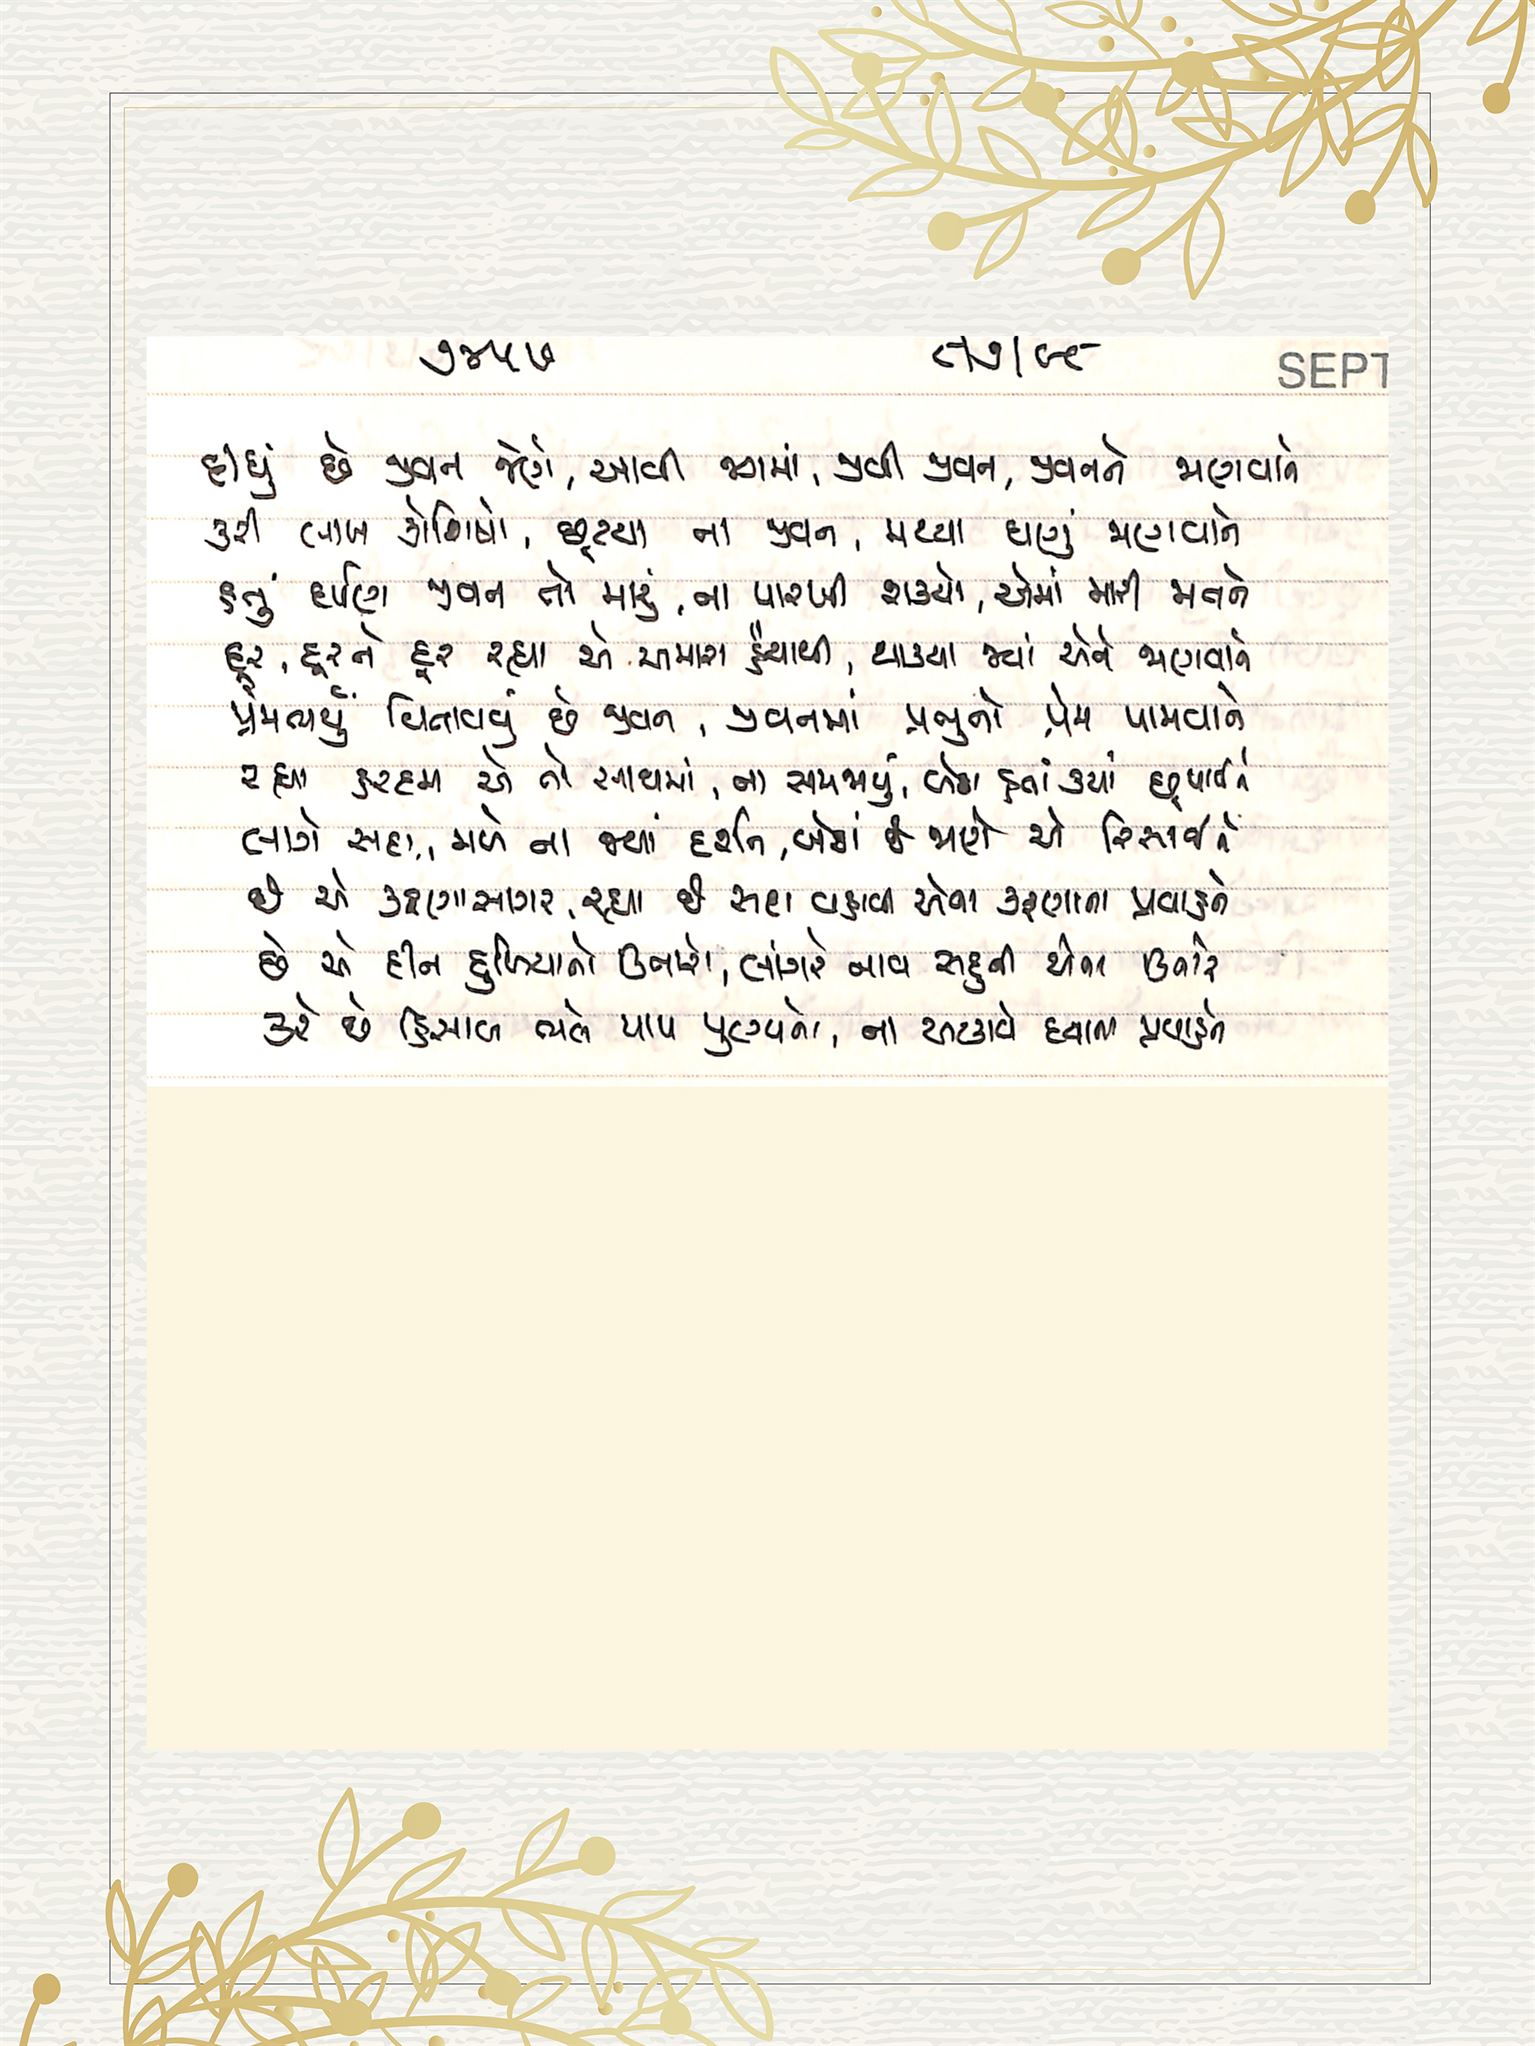 ૭૪૫૭ ૮/૭/૯૮ SEPT
દીધું છે જીવન જેણે, આવી જગમાં, જીવી જીવન, જીવનને જાણવાને
કરી લાખ કોશિષો, છૂટયા ના જીવન, મથ્યા ઘણું જાણવાને
હતું દર્પણ જીવન તો મારું, ના પારખી શક્યો, એમાં મારી મનને
દૂર, દૂરને દૂર રહ્યા એ અમારા હૈયાથી, થાક્યા જ્યાં એને જાણવાને
પ્રેમભર્યું વિતાવવું છે જીવન, જીવનમાં પ્રભુનો પ્રેમ પામવાને
રહ્યા હરદમ એ તો સાથમાં, ના સમજાયું, બેઠા હતાં ક્યાં છૂપાઈને
લાગે સદા, મળે ના જ્યાં દર્શન, બેઠાં છે જાણે એ રિસાઈને
છે એ કરુણાસાગર, રહ્યા છે સદા વહાવી એના કરુણાના પ્રવાહને
છે એ દીન દુઃખિયાનો ઉતારો, લાંગરે નાવ સહુની એના ઉતારે
કરે છે હિસાબ ભલે પાપ પુણ્યનો, ના અટકાવે દયાના પ્રવાહને